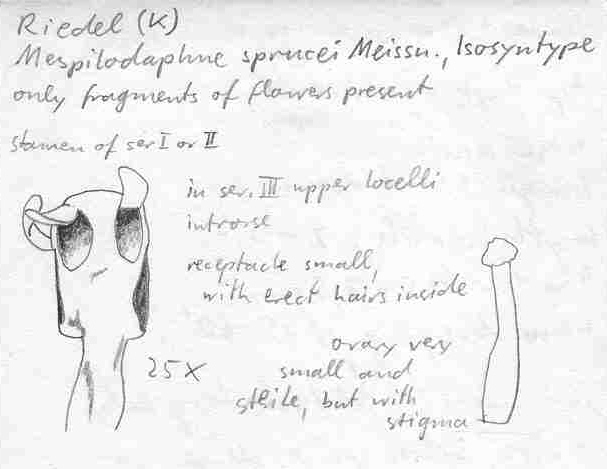 Riedel (K)
Mespilodaphne sprucei Meissn., Isosyntype
only fragments of flowers present
stamen of ser I or II
in ser. III upper locelli
introrse
receptacle small,
with erect hairs inside
ovary very
small and
sterile, but with
stigma
25 X